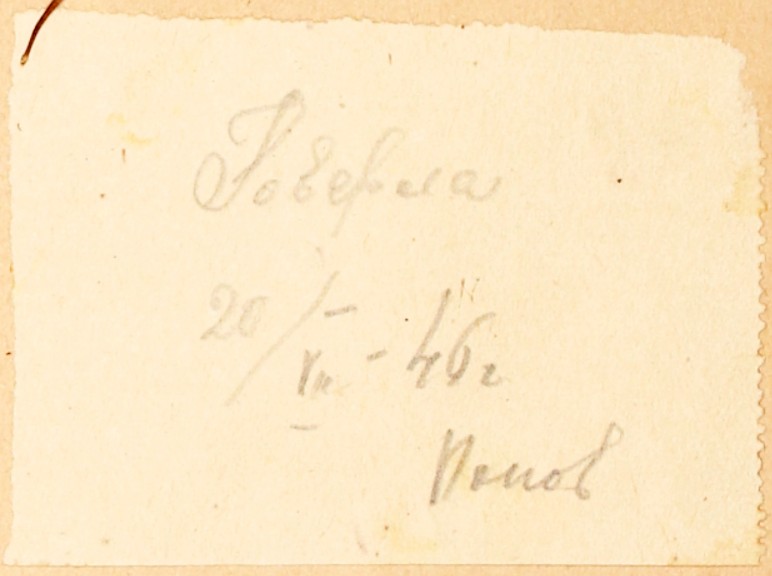 Говерла
20/VII - 46г
Попов